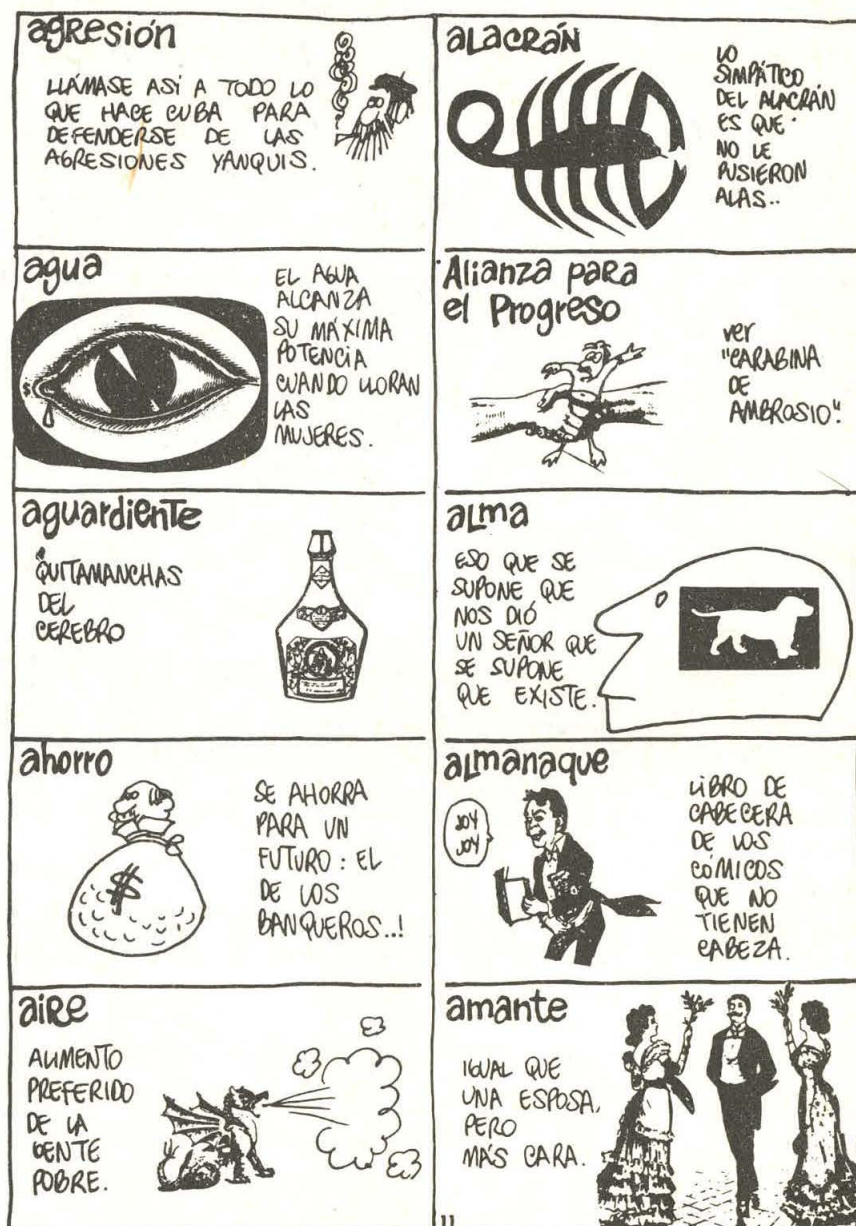 agresión
LLÁMASE ASÍ A TODO LO
QUE HACE CUBA PARA
DEFENDERSE DE LAS
AGRESIONES YANQUIS.
agua
EL AGUA
ALCANZA
SU MÁXIMA
POTENCIA
CUANDO LLORAN
LAS
MUJERES.
aguardiente
QUITAMANCHAS
DEL
CEREBRO
ahorro
$
SE AHORRA
PARA UN
FUTURO: EL
DE LOS
BANQUEROS..!
aire
ALIMENTO
PREFERIDO
DE LA
GENTE
POBRE.
alacrán
LO
SIMPÁTICO
DEL ALACRÁN
ES QUE
NO LE
PUSIERON
ALAS..
Alianza para
el Progreso
ver
"CARABINA
DE
AMBROSIO".
alma
ESO QUE SE
SUPONE QUE
NOS DIÓ
UN SEÑOR QUE
SE SUPONE
QUE EXISTE.
almanaque
JOY
JOY
LIBRO DE
CABECERA
DE LOS
CÓMICOS
QUE NO
TIENEN
CABEZA.
amante
IGUAL QUE
UNA ESPOSA,
PERO
MÁS CARA.
11